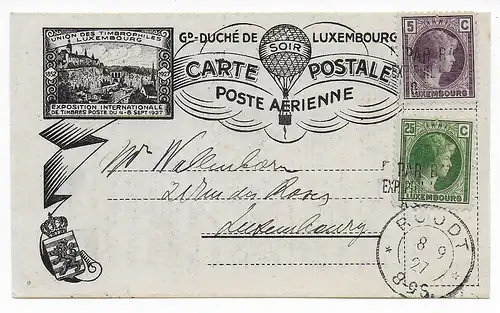 UNION DES TIMBROPHILES
LUXEMBOURG
1852 1927
EXPOSITION INTERNATIONALE
DE TIMBRES POSTE DU 4-8 SEPT. 1927
Gᴰ-DUCHÉ DE LUXEMBOURG
SOIR
CARTE POSTALE
POSTE AÉRIENNE
5 C
LUXEMBOURG
PAR B
25 C
PAR B
EXP
LUXEMBOURG
Mr Wallenborn
21 rue des Roses
Luxembourg
ROODT
8 9
27
8-9S.